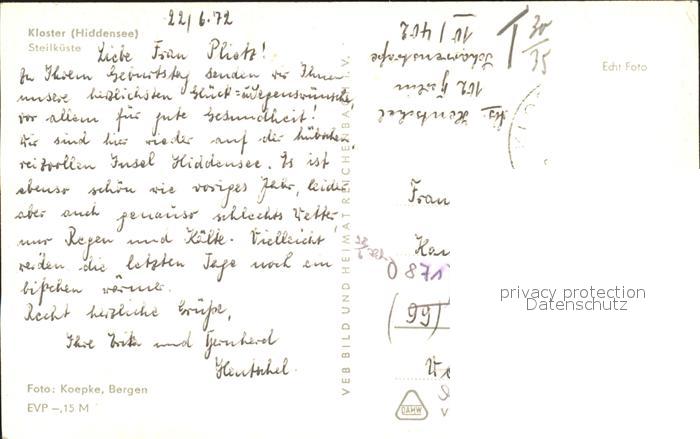 22/6.72
Kloster (Hiddensee)
Steilküste
Liebe Frau Plietz!
Zu Ihrem Geburtstag senden wir Ihnen
unsere herzlichsten Glück- u. Segenswünsche,
vor allem für gute Gesundheit!
Wir sind hier wieder auf der hübschen,
reizvollen Insel Hiddensee. Es ist
ebenso schön wie voriges Jahr, leider
aber auch genauso schlechtes Wetter,
nur Regen und Kälte. Vielleicht
werden die letzten Tage noch ein
bißchen wärmer.
Recht herzliche Grüße,
Ihre Erika und Gernhard
Hentschel.
Foto: Koepke, Bergen
EVP –,15 M
VEB BILD UND HEIMAT REICHENBACH I. V.
Abs. Hentschel
102 Berlin
10/402
T 30/35
Echt Foto
Frau
0871
(99)
privacy protection
Datenschutz
DAMW
V